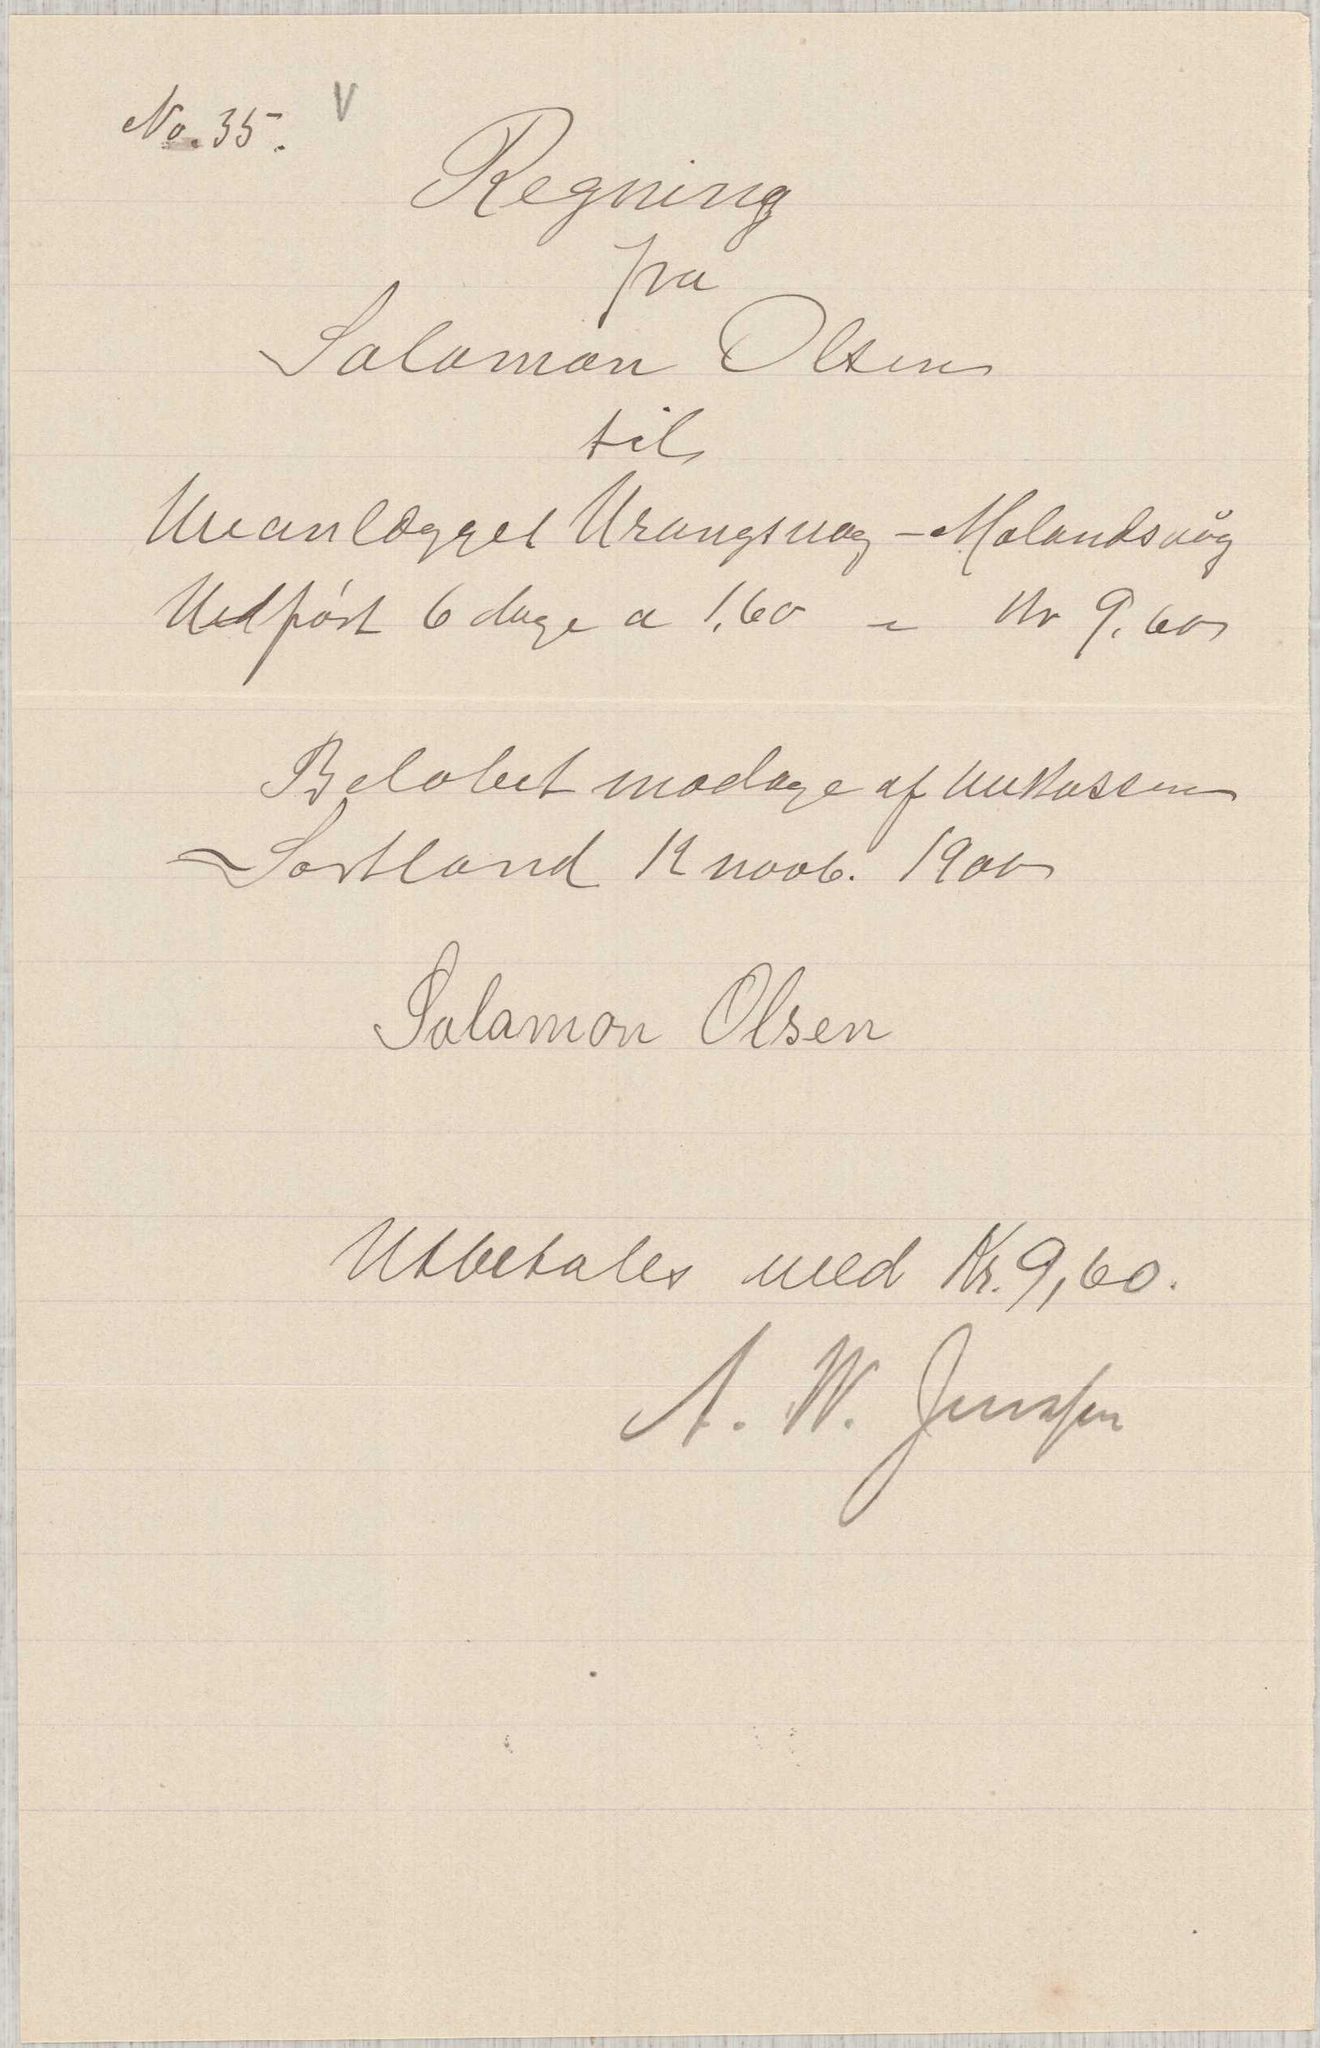 No. 35. V
Regning
fra
Salamon Olsen
til
Veanlægget Vrangsvag - Molandsvåg
Udført 6 dage a 1,60 = Kr 9,60
Beløbet modage af Vekassen
Sortland 12 novb. 1900
Salamon Olsen
Utbetales med Kr. 9,60.
A. W. Jenssen